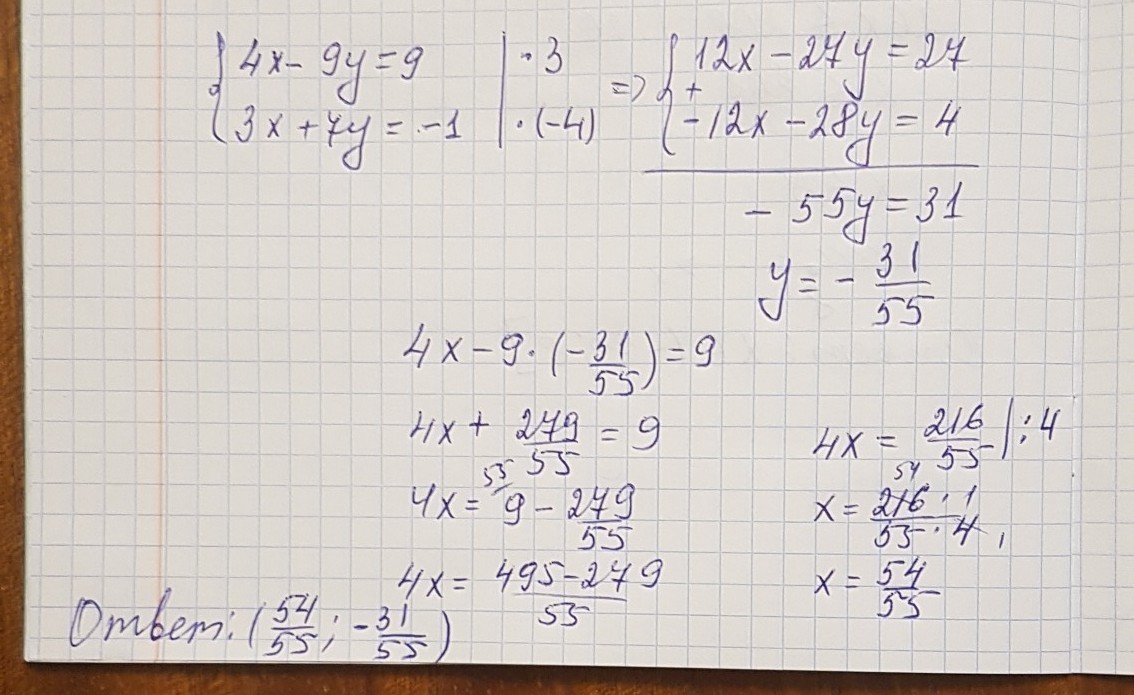 { 4x - 9y = 9 | · 3 => { 12x - 27y = 27
{ 3x + 7y = -1 | · (-4) + { -12x - 28y = 4
- 55y = 31
y = - 31/55
4x - 9 · (-31/55) = 9
4x + 279/55 = 9
4x = 55/ 9 - 279/55
4x = 495-279/55
4x = 216/55 | : 4
x = 54 216 · 1/55 · 4 1
x = 54/55
Ответ: (54/55; -31/55)